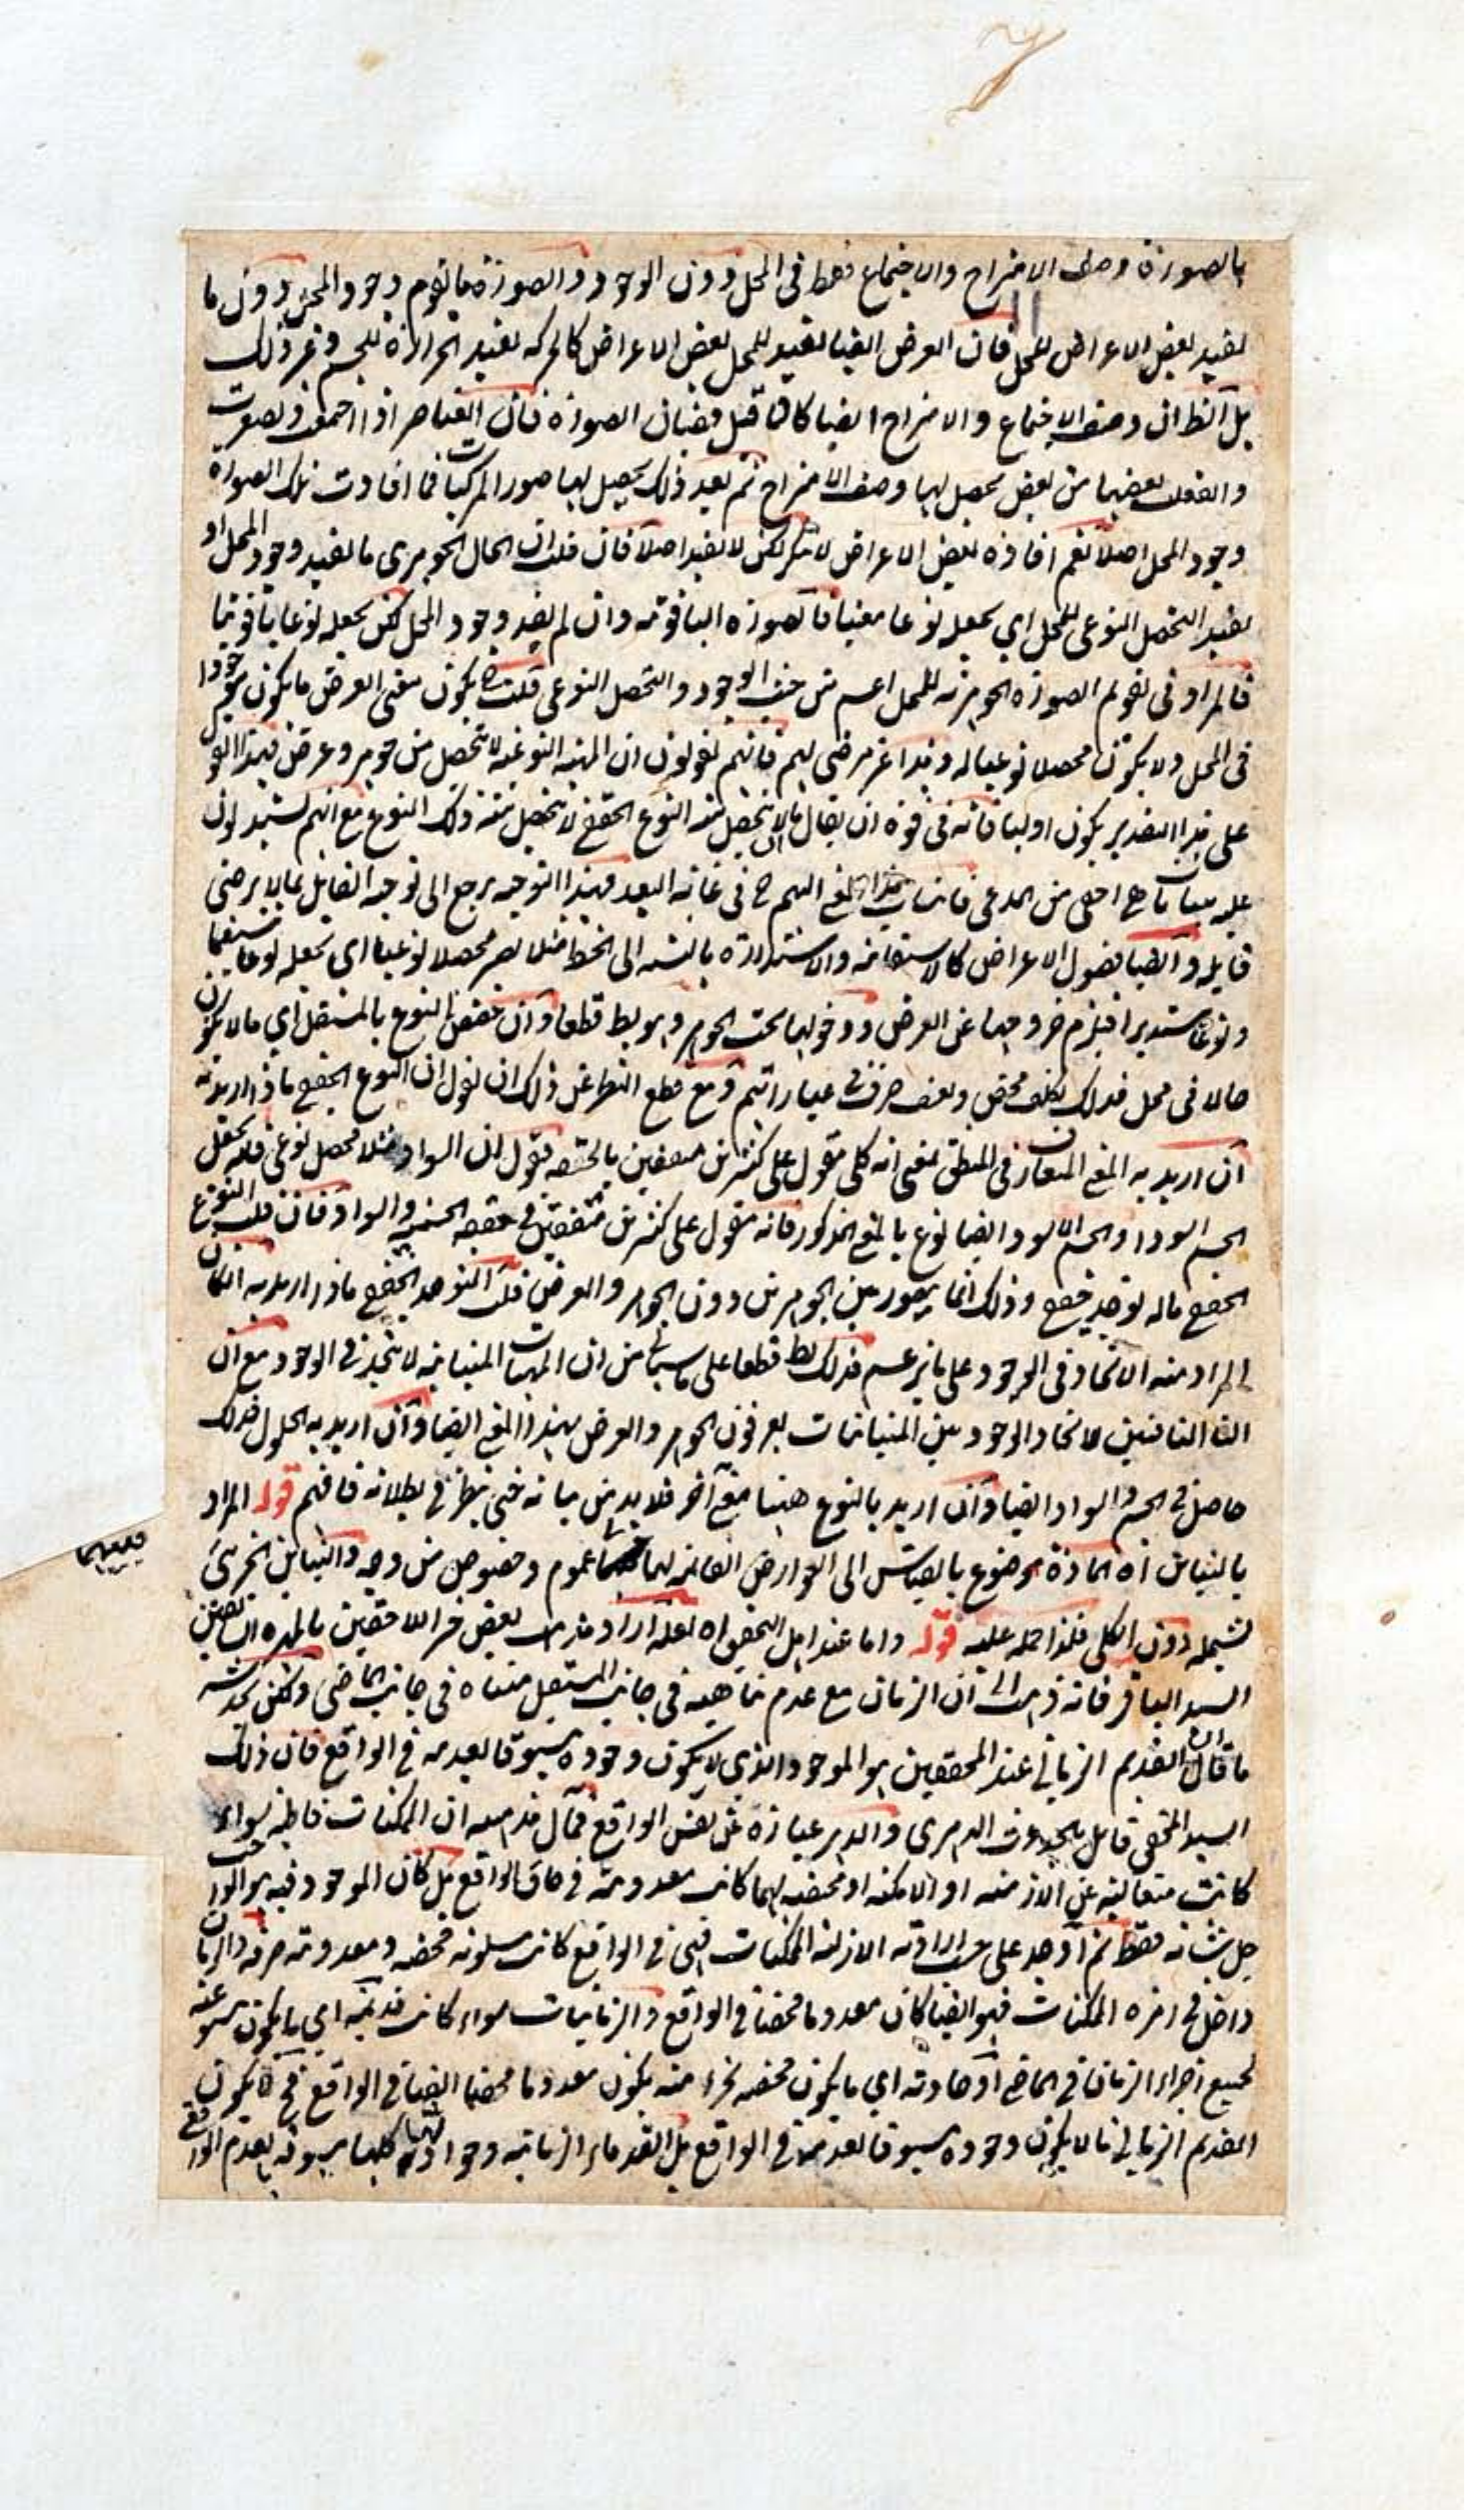 بالصورة وصف الامتزاج والاجتماع فقط فى المحل دون الوجود والصورة ما يقوم وجود المحل دون ما
يفيد بعض الاعراض للمحل فان العرض ايضا يفيد للمحل بعض الاعراض كالحركه تفيد الحرارة للجسم وغير ذلك
بل الظ ان وصف الاجتماع والامتزاج ايضا كانا قبل فيضان الصورة فان العناصر اذا اجتمعت وتصغرت
وانفعلت بعضها من بعض يحصل لها وصف الامتزاج ثم بعد ذلك يحصل لها صور المركبات فما افادت تلك الصورة
وجود المحل اصلا نعم افادة بعض الاعراض لا ينكر لكن لا يفيد اصلا فان قلت ان الحال الجوهرى ما يفيد وجود المحل او
يفيد التحصل النوعى للمحل اي يجعله نوعا معينا فالصورة الياقوتيه وان لم يفد وجود المحل لكن يجعله نوعا ياقوتيا
فالمراد فى تقويم الصورة الجوهريه للمحل اعم من حيث الوجود والتحصل النوعى قلت ح يكون معنى العرض ما يكون موجودا
فى المحل ولا يكون محصلا نوعيا له وهذا غير مرضى لهم فانهم يقولون ان المهيه النوعيه لا تتحصل من جوهر وعرض فهذا القول
على هذا التقدير يكون اوليا فانه فى قوة ان يقال ما لا يتحصل منه النوع الحقيقي لا يتحصل منه ذلك النوع مع انهم يستدلون
عليه ببيانات هى اخفى من المدعى فاثبات هذا المعنى اليهم ح فى غاية البعد فهذا التوجيه يرجع الى توجيه القايل بما لا يرضى
قايله وايضا فصول الاعراض كالاستقامه والاستداره بالنسبه الى الخط مثلا يصير محصلا نوعيا اى تجعله نوعا مستقيما
ونوعا مستديرا فيلزم خروجها عن العرض ودخولها تحت الجوهر وهو بط قطعا وان خصص النوع بالمستقل اي ما لا يكون
حالا فى محل فذلك تكلف محض وتعسف صرف فى عباراتهم ومع قطع النظر عن ذلك ان نقول ان النوع الحقيقي ماذا اريد به
ان اريد به المعنى المتعارف فى المنطق يعنى انه كلى مقول على كثيرين متفقين بالحقيقه فنقول ان السواد مثلا محصل نوعى فانه يجعل
الجسم اسود والجسم الاسود ايضا نوع بالمعنى المذكور فانه مقول على كثيرين متفقين فى حقيقه الجسميه والسواد فان قلت النوع
الحقيقي ما له توحد حقيقي وذلك انما يتصور بين الجوهرين دون الجوهر والعرض قلت التوحد الحقيقي ماذا اريد به ان كان
المراد منه الاتحاد فى الوجود على ما يزعم فذلك بط قطعا على ما سياتى من ان المهيات المتباينه لا تتحد فى الوجود مع ان
القائلين لاتحاد الوجود بين المتباينات يعرفون الجوهر والعرض بهذا المعنى ايضا وان اريد به الحلول فذلك
حاصل فى الجسم والسواد ايضا وان اريد بالنوع ههنا معنى آخر فلا بد من بيانه حتى ينظر فى بطلانه فافهم قوله المراد
بالتباين اه المادة موضوع بالقياس الى العوارض القائمه لها عموم وخصوص من وجه والتباين الجزئى
يشمله دون الكلى فلذا حمله عليه قوله واما عند اهل التحقيق اه لعله اراد مذهب بعض خير اللاحقين بالمهره السابقين
السيد الباقر فانه ذهب الى ان الزمان مع عدم تناهيه فى جانب المستقبل متناه فى جانب الماضى ولكن يخدشه
ما قال ان القديم الزمانى عند المحققين هو الموجود الذى لا يكون وجوده مسبوقا بعدمه فى الواقع فان ذلك
السيد المحقق قايل بالحدوث الدهرى والدهر عبارة عن نفس الواقع فمآل مذهبه ان الممكنات قاطبه سواء
كانت متعاليه عن الازمنه او الامكنه او مختصه بهما كانت معدومه فى حاق الواقع بل كان الموجود فيه هو الواجب
جل شانه فقط ثم اوجد على حسب ارادته الازليه الممكنات فهى فى الواقع كانت مسلوبه محضه ومعدومه صرفه والزمان
داخل فى زمره الممكنات فهو ايضا كان معدوما محضا فى الواقع والزمانيات سواء كانت قديمه اى ما يكون مسوعبه
لجميع اجزاء الزمان فى الماضي او حادثه اي ما يكون مختصه بجزء منه يكون معدوما محضا ايضا فى الواقع فح لا يكون
القديم الزمانى ما لا يكون وجوده مسبوقا بعدمه فى الواقع بل القدماء الزمانيه وحوادثها كلها مسبوقه بعدم الواقعى